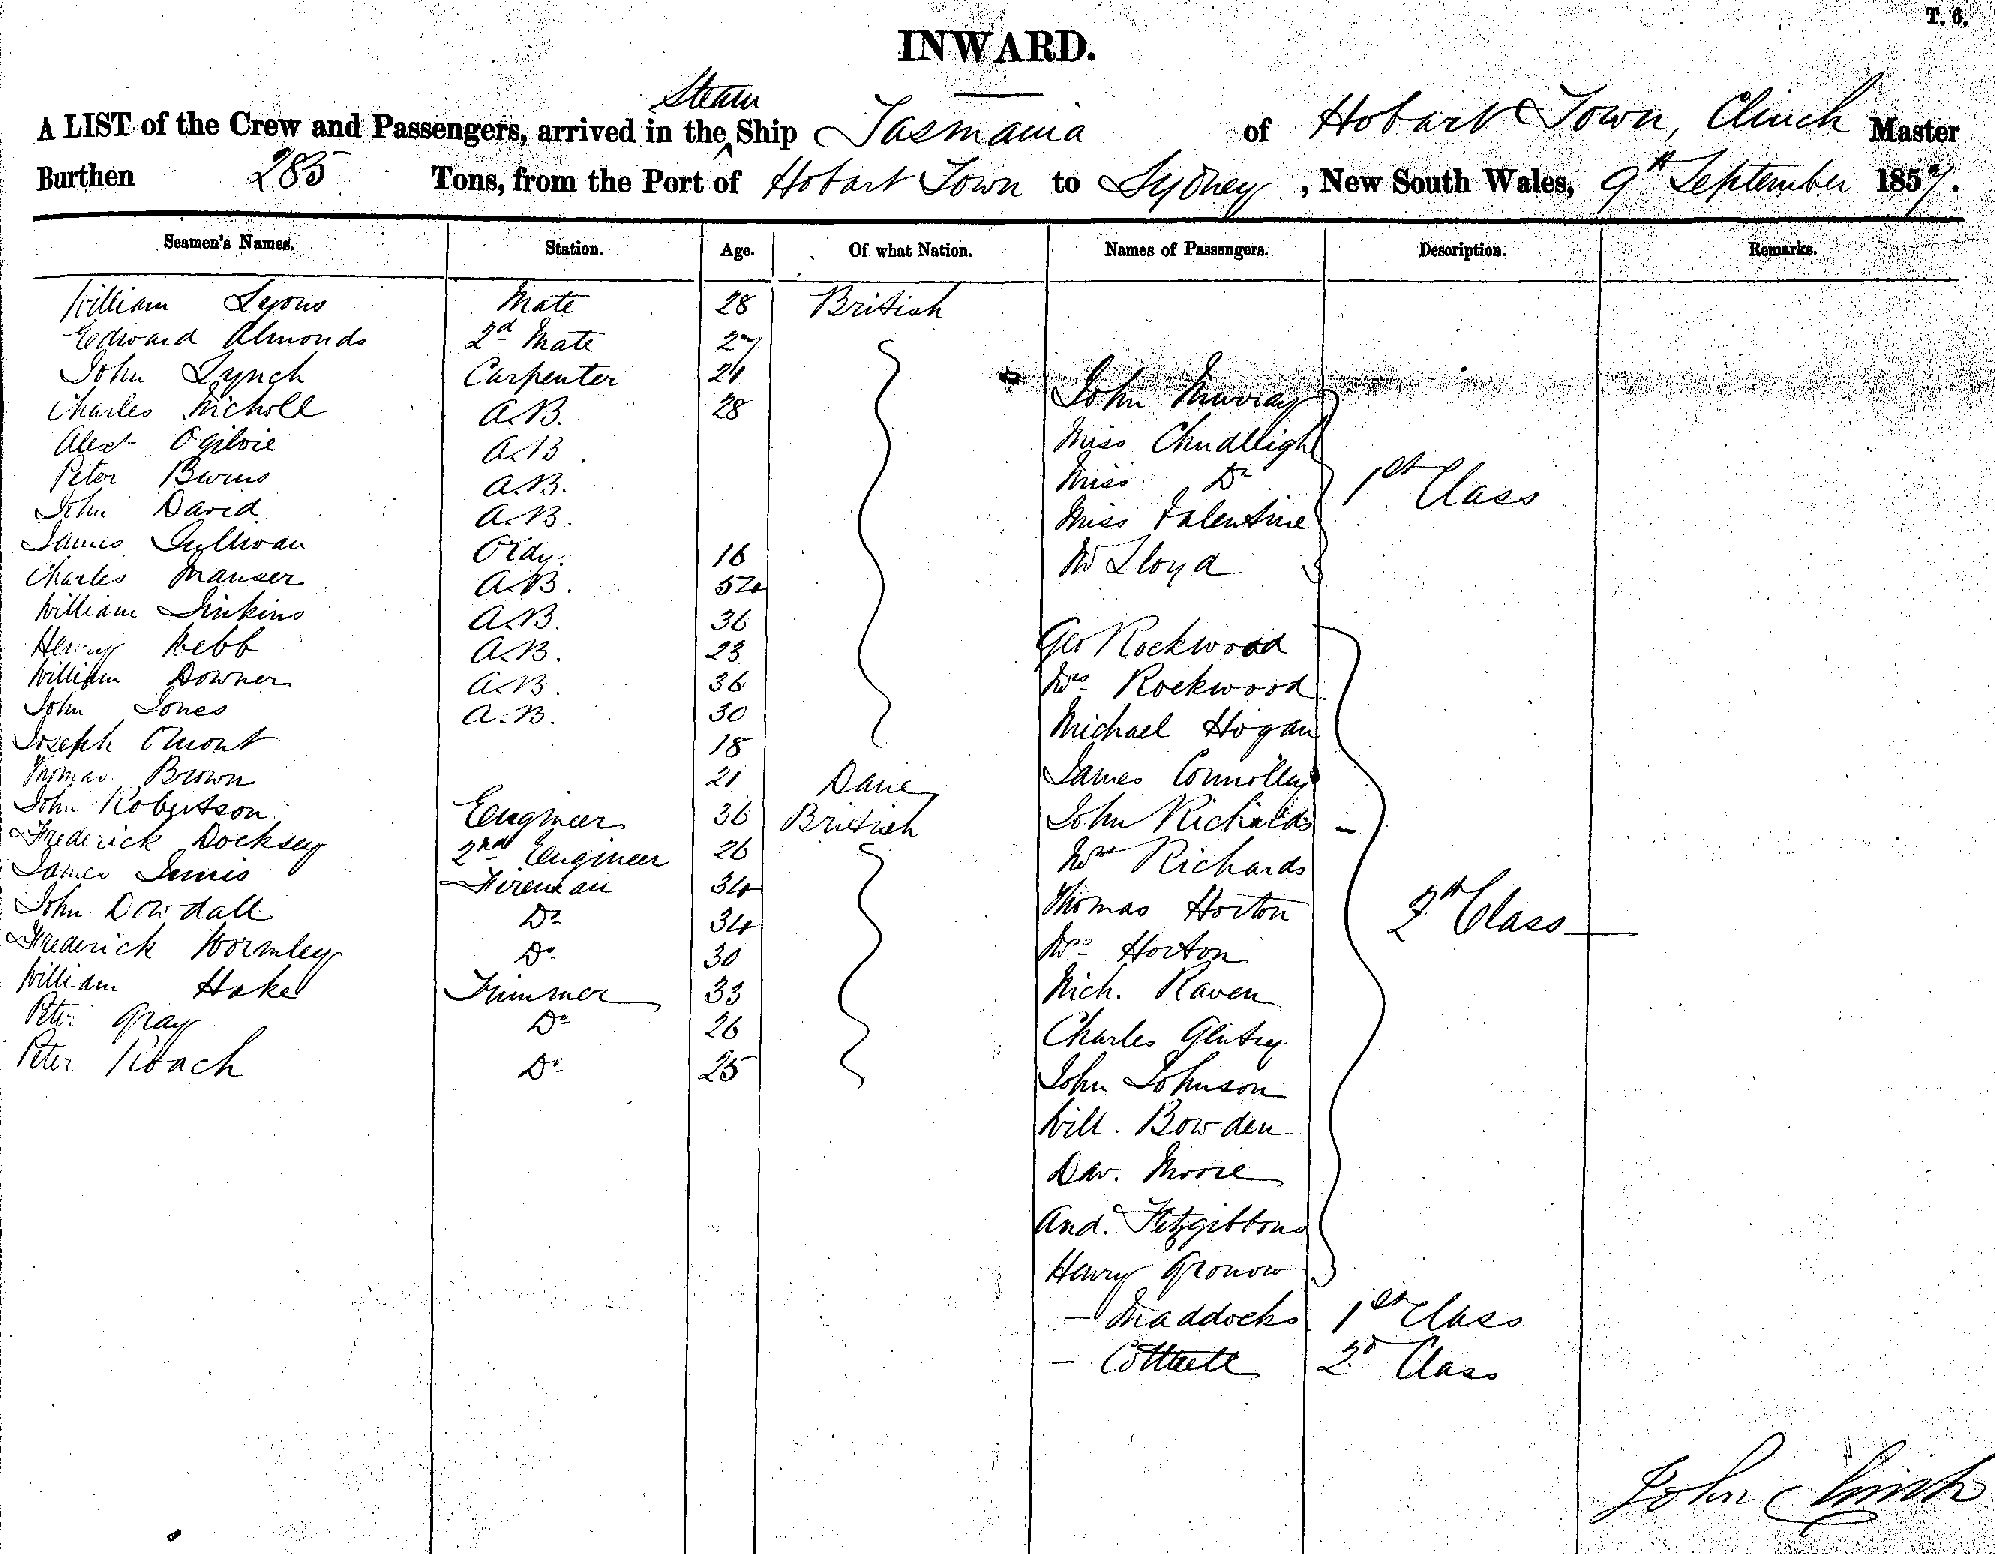 T. 6.
INWARD.
Steam
A LIST of the Crew and Passengers, arrived in the Ship Tasmania of Hobart Town, Clinch Master
Burthen 285 Tons, from the Port of Hobart Town to Sydney, New South Wales, 9th September 1857.
Seamen's Names. Station. Age. Of what Nation. Names of Passengers. Description. Remarks.
William Lyons Mate 28 British
Edward Almonds 2d Mate 27
John Lynch Carpenter 21
Charles Nicholl A.B. 28 John Murray
Alexr Ogilvie A.B. Miss Chudleigh
Peter A.B. Miss Do 1st Class
John David A.B. Miss Valentine
James Sullivan Ordy. 16 Mr Lloyd
Charles Manser A.B. 52
William Jinkins A.B. 36
Henry Webb A.B. 23 Geo Rockwood
William Downer A.B. 36 Mrs Rockwood
John Jones A.B. 30 Michael Hogan
Joseph Omont 18
Thomas Brown 21 Dane James Connolley
John Robertson Engineer 36 British John Richards
Frederick Docksey 2nd Engineer 26 Mrs Richards
James Innis Fireman 34 Thomas Horton 2d Class
John Dowdall Do 34
Frederick Wormley Do 30 Mrs Horton
William Hake Trimmer 33 Nich. Raven
Peter Gray Do 26 Charles Gentry
Peter Roach Do 25 John Johnson
Will. Bowden
Dav. Moore
And. Fitzgibbons
Henry Gronow
— Maddocks 1st Class
— Cottrell 2d Class
John Clinch